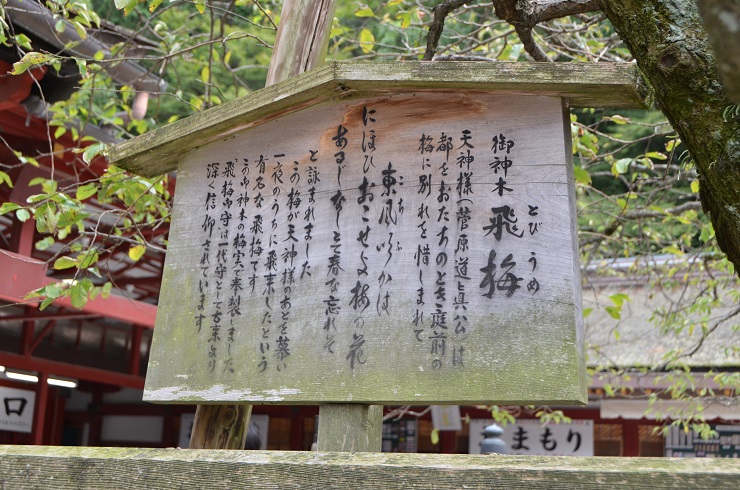 御神木 飛梅
とびうめ
天神様(菅原道眞公)は
都をおたちのとき庭前の
梅に別れを惜しまれて
東風ふかば
こち
にほひおこせよ梅の花
あるじなしとて春な忘れそ
と詠まれました
この梅が天神様のあとを慕い
一夜のうちに飛来したという
有名な 飛梅です
この御神木の梅実で奉製しました
飛梅御守は一代守として古来より
深く信仰されています
口
まもり